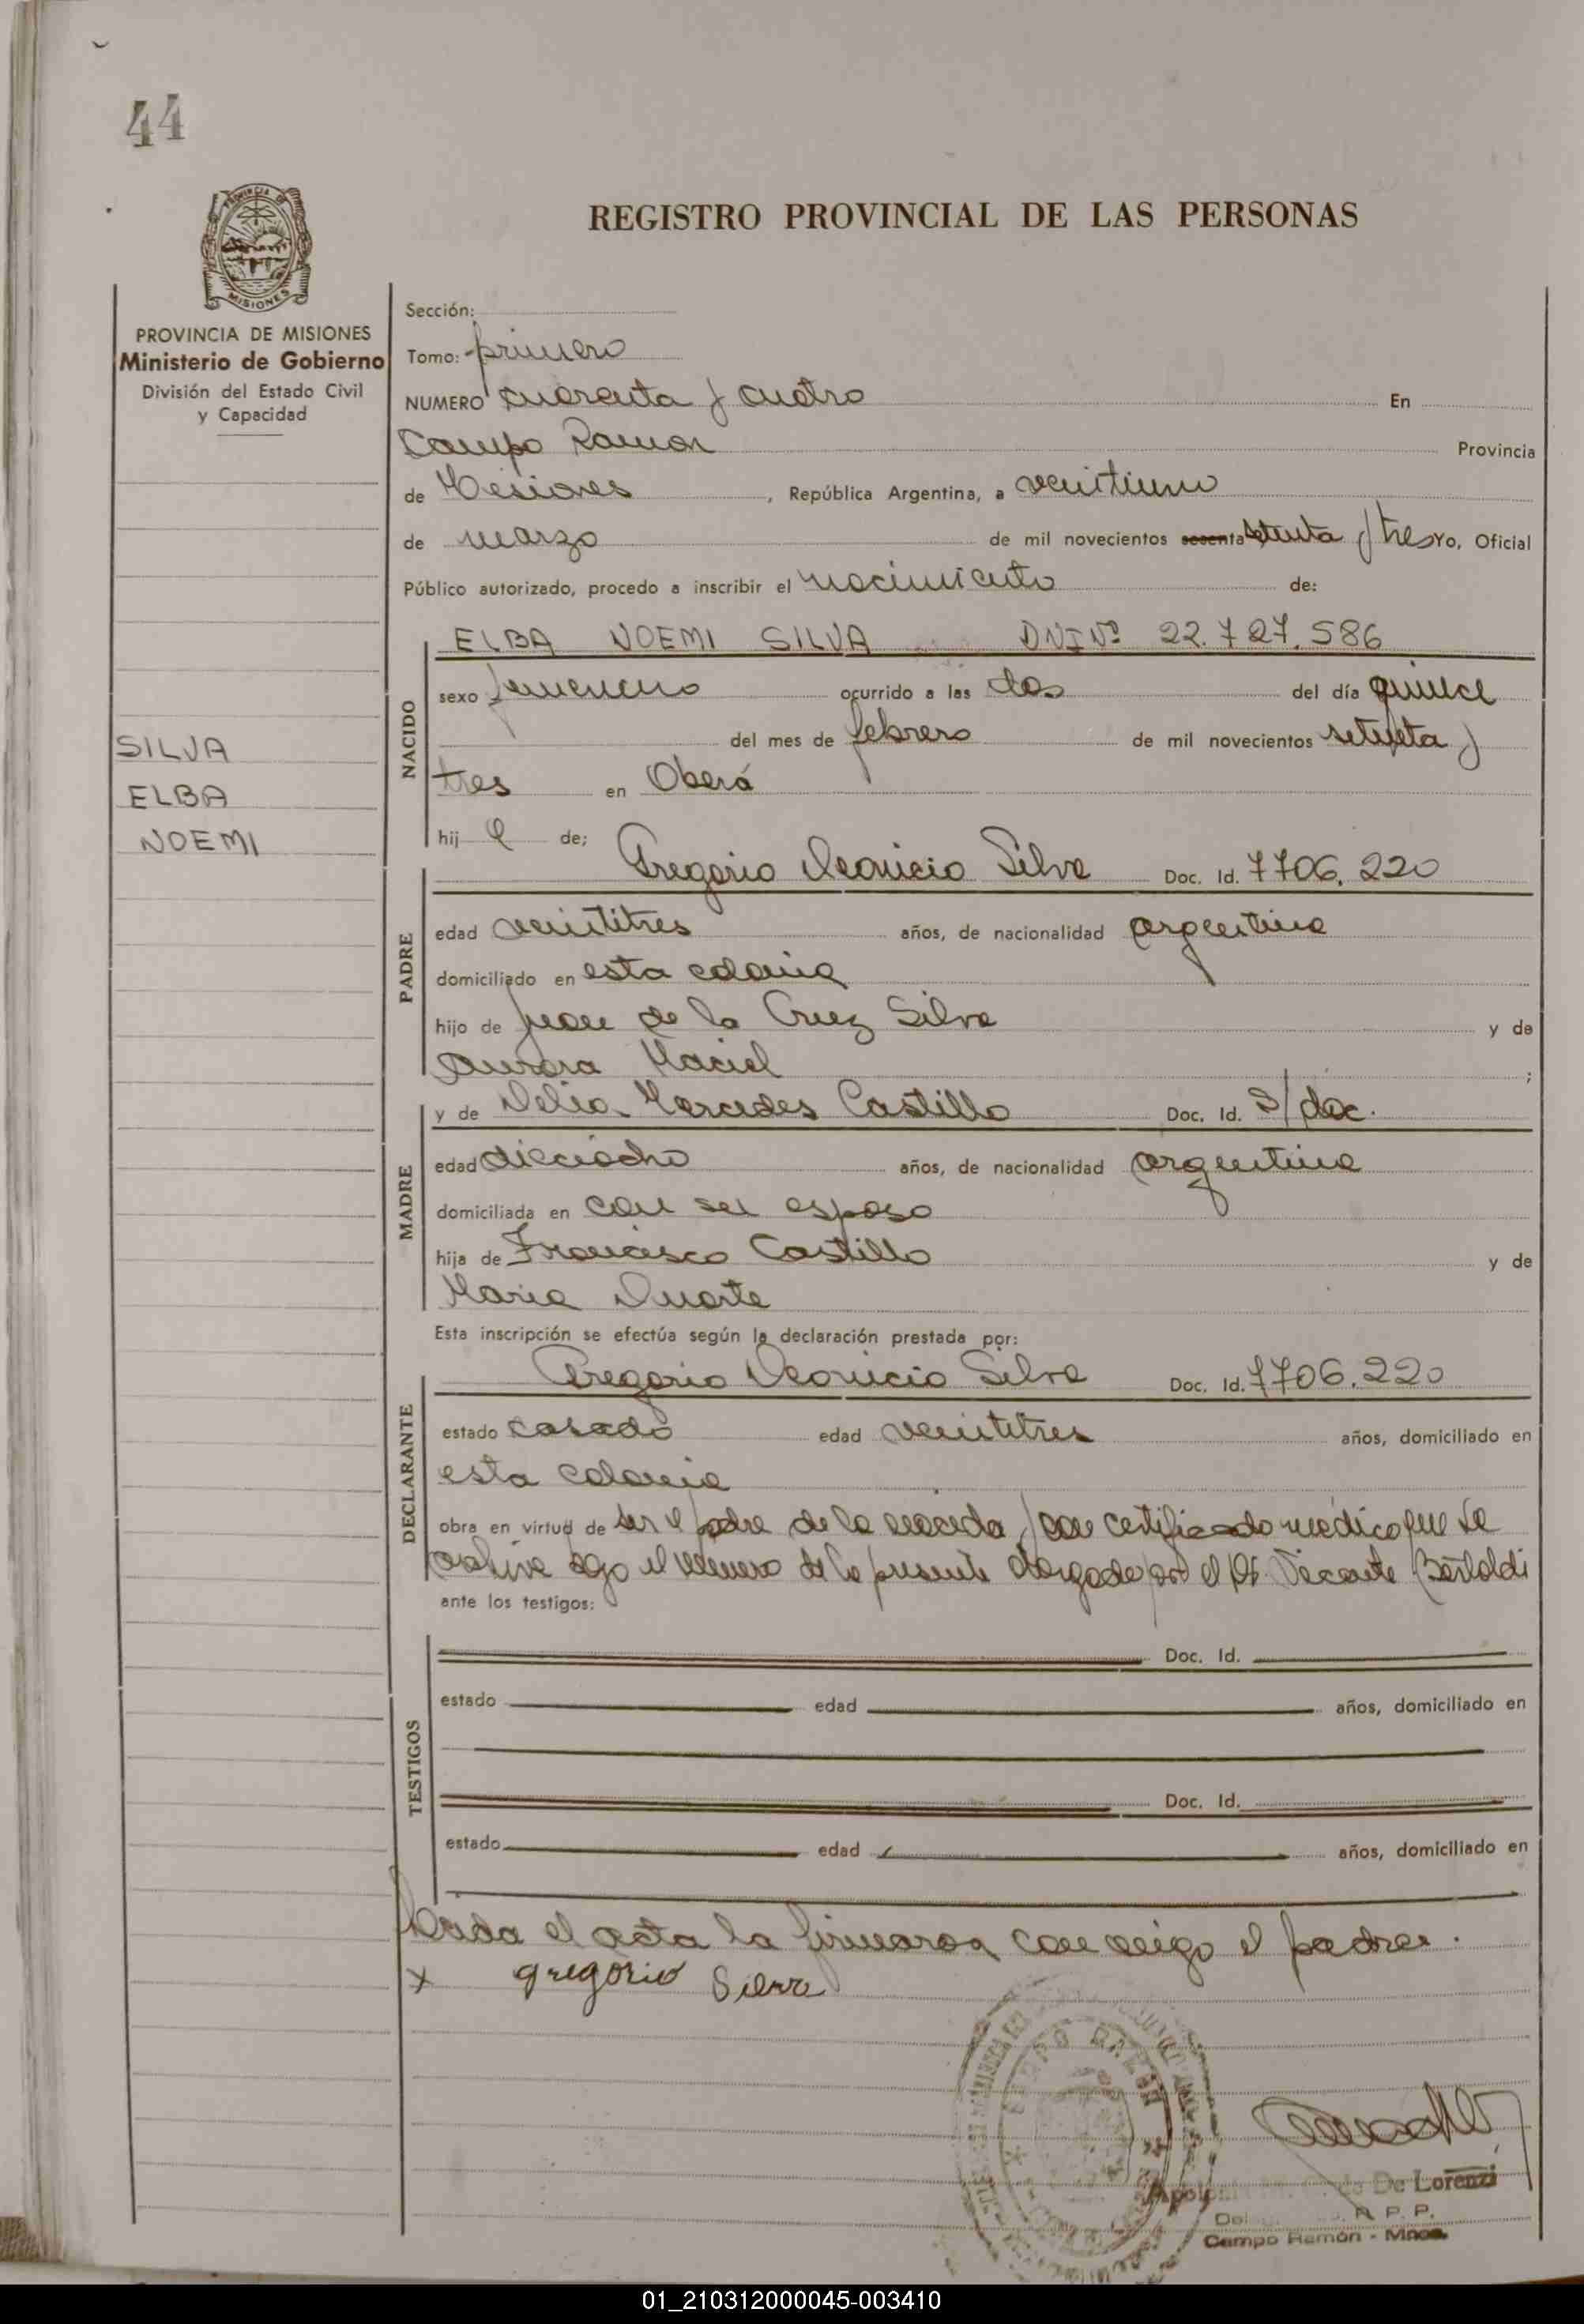 44
REGISTRO PROVINCIAL DE LAS PERSONAS
PROVINCIA DE MISIONES
Ministerio de Gobierno
División del Estado Civil
y Capacidad
SILVA
ELBA
NOEMI
Sección:
Tomo: primero
NUMERO cuarenta y cuatro En
Campo Ramon Provincia
de Misiones, República Argentina, a veintiuno
de marzo de mil novecientos sesenta setenta y tres Yo, Oficial
Público autorizado, procedo a inscribir el nacimiento de:
NACIDO
ELBA NOEMI SILVA DNI Nº 22.727.586
sexo femenino ocurrido a las dos del día quince
del mes de febrero de mil novecientos setenta y
tres en Oberá
hij a de;
PADRE
Gregorio Deonicio Silva Doc. Id. 7706.220
edad veintitres años, de nacionalidad argentina
domiciliado en esta colonia
hijo de Juan de la Cruz Silva y de
Aurora Maciel ;
MADRE
y de Delia Mercedes Castillo Doc. Id. S/doc.
edad dieciocho años, de nacionalidad argentina
domiciliada en con su esposo
hija de Francisco Castillo y de
Maria Duarte
Esta inscripción se efectúa según la declaración prestada por:
DECLARANTE
Gregorio Deonicio Silva Doc. Id. 7706.220
estado casado edad veintitres años, domiciliado en
esta colonia
obra en virtud de ser el padre de la nacida, con certificado medico que se
archiva bajo el número de la presente otorgado por el Dr. Vicente Bertoldi
ante los testigos:
TESTIGOS
Doc. Id.
estado edad años, domiciliado en
Doc. Id.
estado edad años, domiciliado en
Leida el acta la firmaron conmigo el padre.
x gregorio Silva
CAMPO RAMON
De Lorenzi
R. P. P.
Campo Ramón - Mnes.
01_210312000045-003410